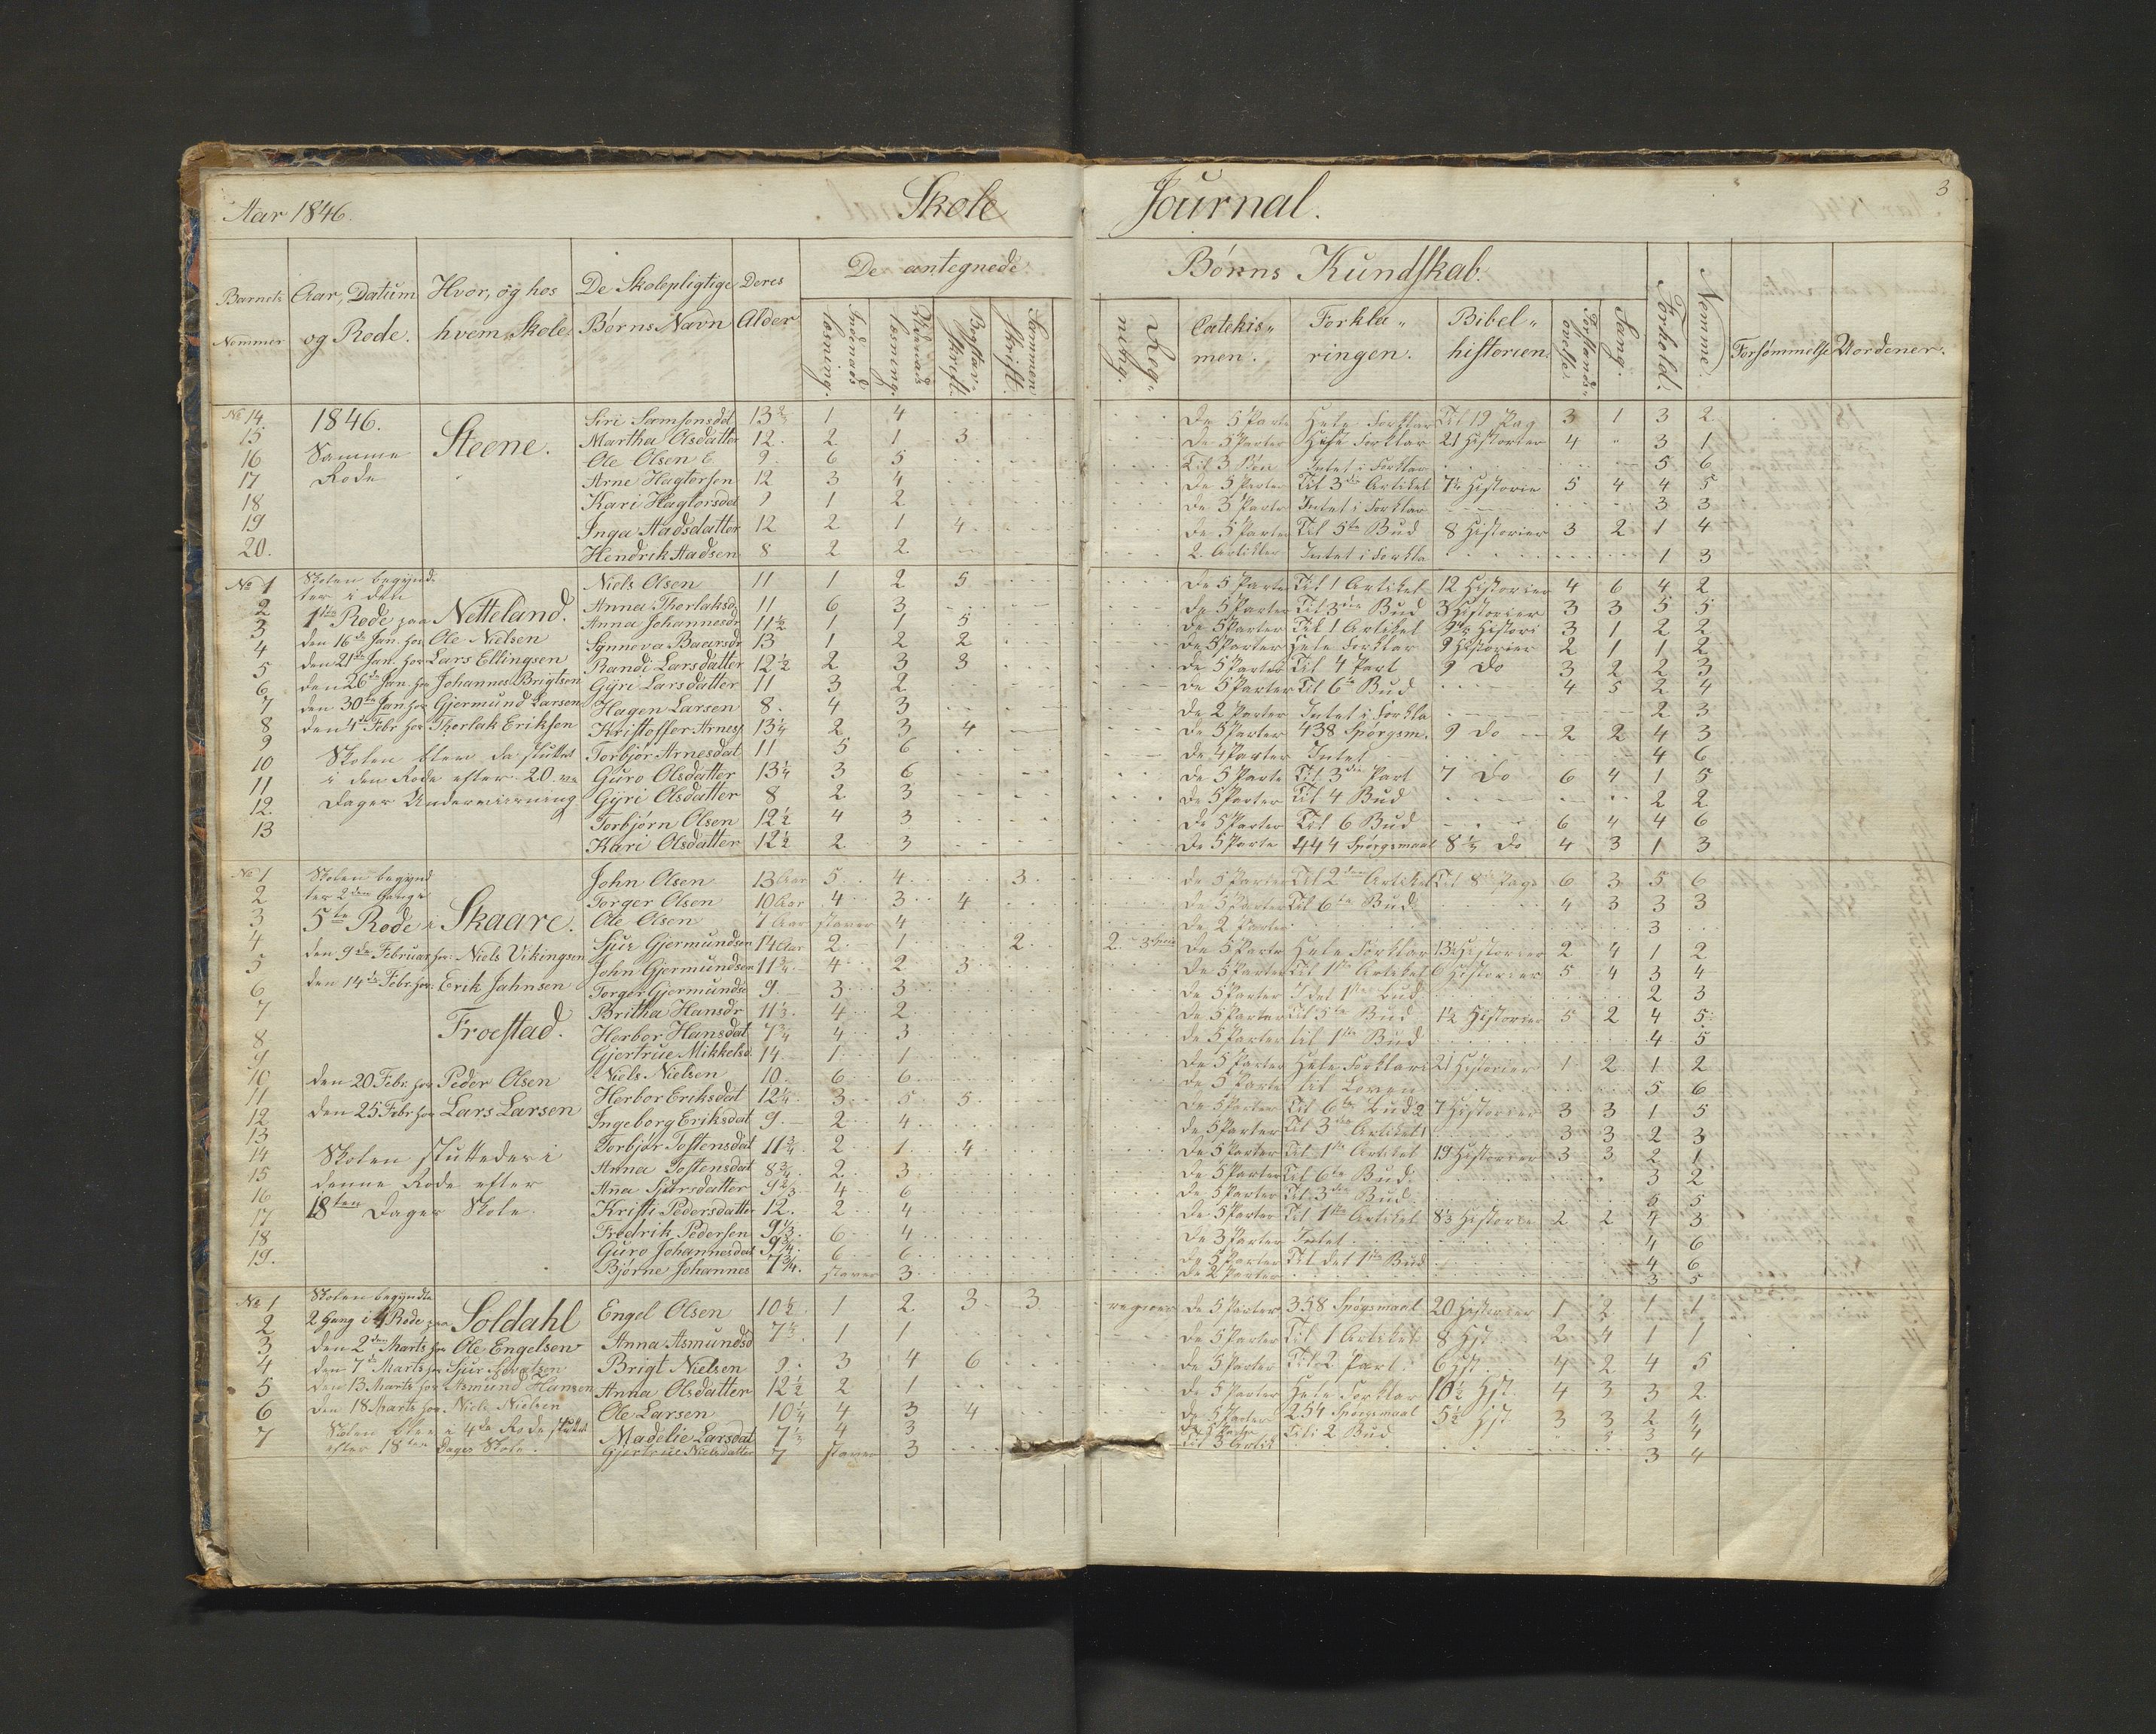 Aar 1846. Skole Journal. 3
De antegnede Börns Kundskab.
Barnets Nommer
Aar, Datum og Rode.
Hvor, og hos hvem Skole
De Skolepligtige Börns Navn
Deres Alder
Indenads læsning.
Udenads læsning.
Bogstav- skrift.
Sammen skrift.
Reg- ning.
Catekis- men.
Forkla- ringen.
Bibel- historien.
Forstands- øvelse.
Sang.
Forhold.
Nemme.
Forsømmelse
Uordener.
No 14 1846. Steene. Siri Samsonsdat 13 2/3 1 4 De 5 Parte Hele Forklar Til 19 Pag 3 1 3 2
15 Samme Martha Olsdatter 12. 2 1 3 De 5 Parter Hele Forklar 21 Historier 4 " 3 1
16 Rode Ole Olsen 9 6 5 Til 3 Bøn Intet i Forklar 5 6
17 Arne Hagtorsen 12 3 4 De 5 Parter Til 3die Artikel 7 1/2 Historie 5 4 4 5
18 Kari Hagtorsdat 9 1 2 De 3 Parte Intet i Forklar 3 3
19 Inga Aadsdatter 12 2 1 4 De 5 Parter Til 5te Bud 8 Historier 3 2 1 4
20. Hendrik Aadsen 8 2 2 2 Artikler Intet i Forkla 1 3
No 1 Skolen begynd- Niels Olsen 11 1 2 5 De 5 Parte Til 1 Artikel 12 Historier 4 6 4 2
tes i den
2 1ste Rode paa Netteland. Anna Thorlaksd 11 6 3 De 5 Parter Til 3die Bud 3 Historier 3 3 5 5
3 den 16de Jan. hos Ole Nielsen Anna Johannesdr 11 1/2 1 1 5 De 5 Parter Til 1 Artikel Histori 3 1 2 2
4 den 21de Jan. hos Lars Ellingsen Synneva Baarsdr 13 1 2 2 De 5 Parter Hele Forklar 9 Historier 2 1 1 2
5 den 26de Jan. hos Johannes Brigtsen Randi Larsdatter 12 1/2 2 3 3 De 5 Parter Til 4 Part 9 Do 3 2 2 3
6 den 30te Jan. hos Gjermund Larsen Gÿri Larsdatter 11 3 2 De 5 Parter Til 6te Bud 4 5 2 4
7 den 4de Febr hos Thorlak Eriksen Hagen Larsen 8. 4 3 De 2 Parter Intet i Forkla 2 3
8 Skolen blev da sluttet Kristoffer Arnes 13 1/4 2 3 4 De 5 Parter 438 Spörgsm. 9 do 2 2 4 3
9 i den Rode efter 20 Torbjør Arnesdat 11 5 6 De 4 Parter Intet 4 6
10 Dages Underviisning Guro Olsdatter 13 1/4 3 6 De 5 Parte Til 3die Part 7 Do 6 4 1 5
11 Gÿri Olsdatter 8 2 3 De 5 Parter Til 4 Bud 2 2
12. Torbjørn Olsen 12 1/2 4 3 De 5 Parter Til 6 Bud 6 4 4 6
13 Kari Olsdatter 12 1/2 2 3 De 5 Parte 444 Spörgsmaal Do 4 3 1 3
No 1 Skolen begynd John Olsen 13 Aar 5 4 3 De 5 Parter Til 2den Artikel Til 8 Page 6 3 5 6
2 tes 2den Gang i Torger Olsen 10 Aar 4 3 4 De 5 Parter Til 6te Bud 4 3 3 3
3 5te Rode i Skaare. Ole Olsen 7 Aar staver 4 De 2 Parter 3
4 den 9de Februar hos Niels Vikingsen Sjur Gjermundsen 14 Aar 2 1 2 2 De 5 Parte Hele Forklar 13 1/2 Historier 2 4 1 2
5 den 14de Febr. hos Erik Jahnsen John Gjermundsen 11 3/4 4 2 3 De 5 Parter Til 1ste Artikel 6 Historier 5 4 3 4
6 Torger Gjermundse 9. 3 3 De 5 Parter I det 1ste Bud 2 3
7 Froestad. Britha Hansdr 11 1/3. 4 2 De 5 Parter Til 5te Bud 1 1/2 Historier 5 2 4 5
8 Herbor Hansdat 7 3/4 4 3 De 5 Parter til 1ste Bud 4 5
9 Gjertrue Mikkelsd 14 1 1 De 5 Parter Hele Forklari 21 Historier 1 2 1 2
10 den 20 Febr. hos Peder Olsen Niels Nielsen 10. 6 6 De 5 Parte til Loven 5 6
11 den 25 Febr hos Lars Larsen Herbor Eriksdat 12 1/4 3 5 5 De 5 Parter Til 6te Bud 7 Historier 3 3 1 5
12 Ingeborg Eriksdat 9 2 4 De 5 Parter Til 3die Artikel 3 3 2 3
13 Skolen sluttedes i Torbjør Tostensdat 11 3/4 2 1 4 De 5 Parter Til 1ste Artikel 19 Historier 3 3 2 1
14 denne Rode efter Anna Tostensdat 8 3/4 2 3 De 5 Parter Til 6te Bud 3 2
15 18ten Dages Skole. Aña Sjursdatter 9 2/3 4 6 De 5 Parter Til 3die Bud 5
16 Kristi Pedersdatte 12. 2 4 De 5 Parter Til 1ste Artikel 8 1/3 Historie 2 2 4 3
17 Fredrik Pedersen 9 1/3 6 4 De 3 Parter Intet 4 6
18 Guro Johannesdat 9 3/4 6 6 De 5 Parter Til det 1ste Bud 4 6
19. Bjørne Johannes 7 3/4. staver 3 De 2 Parter 3 5
No 1 Skolen begyndte Engel Olsen 10 1/2 1 2 3 3 regner De 5 Parter 358 Spögsmaal 20 Historier 1 2 1 1
2 2 Gang i 4 Rode paa Söldahl Anna Asmundsd 7 1/3 1 1 De 5 Parter Til 1 Artikel 8 Hst 2 4 1 1
3 den 2den Marts hos Ole Engelsen Brigt Nielsen 9 3 4 6 De 5 Parter Til 2 Part 6 Hst 4 2 4 5
4 den 7de Marts hos Sjur Anna Olsdatter 12 1/2 2 1 De 5 Parter Hele Forklar 10 1/2 Hst 4 3 3 2
5 den 13 Marts hos Asmund Hansen Ole Larsen 10 1/4 4 3 4 De 5 Parter 254 Spörgsmaal 5 1/2 Hst 3 3 2 4
6 den 18 Marts hos Niels Nielsen Madelie Larsdat 7 1/3 4 3 De 5 Parter Til 2 Bud 3 3 4
7 Skolen blev i 4de Rode sluttet Gjertrue Nielsdatter 7 staver 3 Til 3 Artik 3 4
efter 18ten Dages Skole.